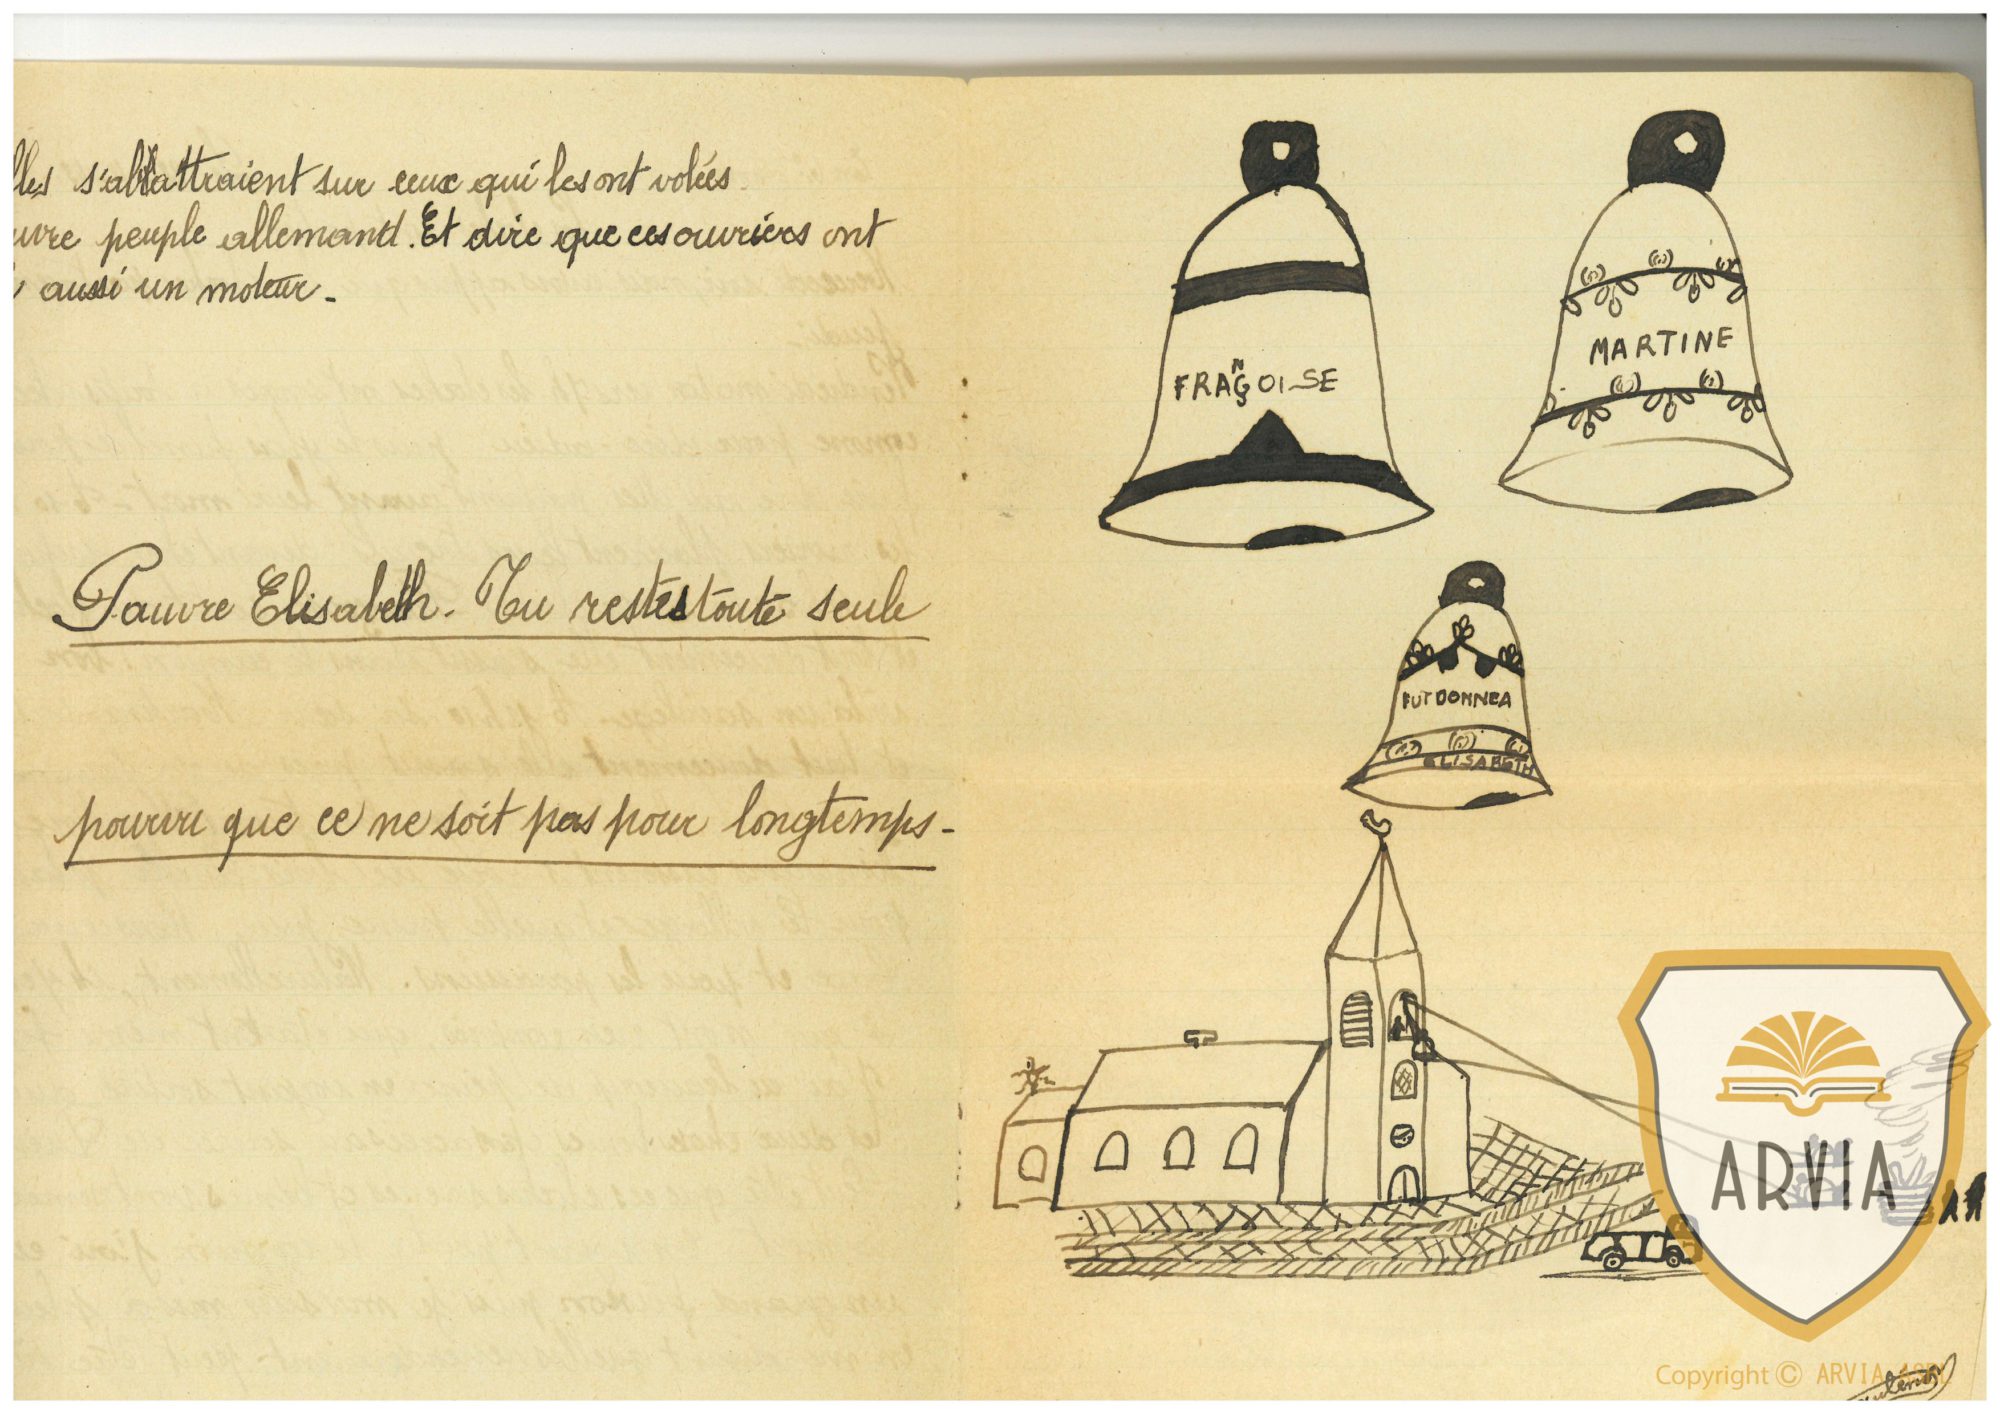 lles s'abattraient sur ceux qui les ont volées
uvre peuple allemand. Et dire que ces ouvriers ont
aussi un moteur.
Pauvre Elisabeth. Tu restes toute seule
pourvu que ce ne soit pas pour longtemps.
FRANÇOISE
MARTINE
FUT DONNEA
ELISABETH
ARVIA
Copyright © ARVIA ASBL